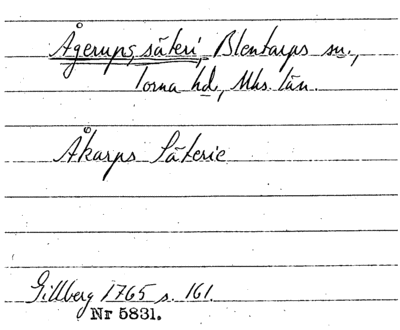 Ågerups, säteri, Blentarps sn.,
Torna hd, Mhs. län.
Åkarps Säterie
Gillberg 1765 s. 161.
Nr 5831.